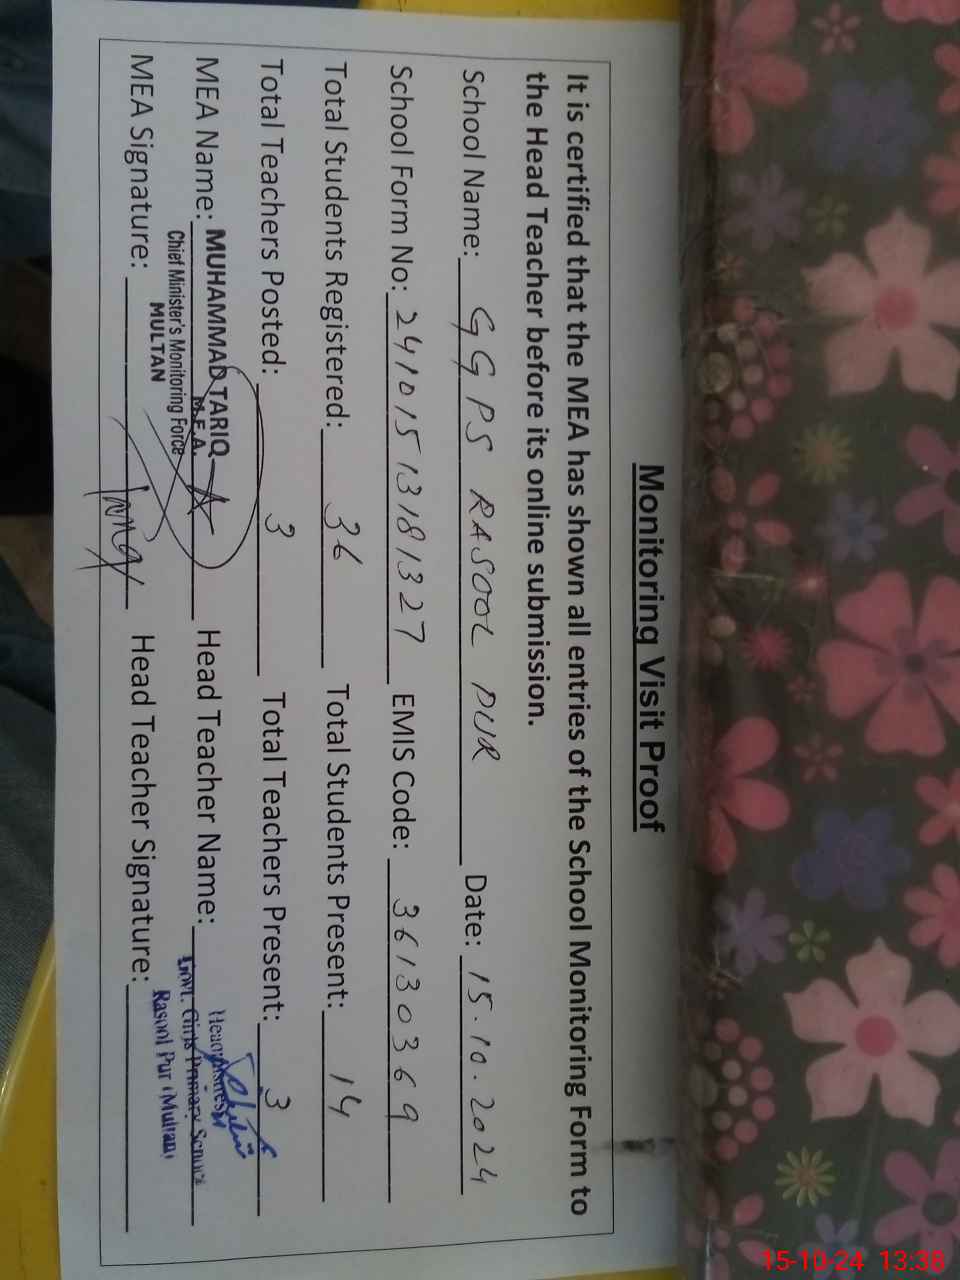 Monitoring Visit Proof
It is certified that the MEA has shown all entries of the School Monitoring Form to
the Head Teacher before its online submission.
School Name: GGPS RASOOL PUR Date: 15.10.2024
School Form No: 24101513181327 EMIS Code: 36130369
Total Students Registered: 36 Total Students Present: 14
Total Teachers Posted: 3 Total Teachers Present: 3
MEA Name: MUHAMMAD TARIQ Head Teacher Name: Headmistress
M.E.A. Govt. Girls Primary School
Chief Minister's Monitoring Force Rasool Pur (Multan)
MULTAN
MEA Signature: Head Teacher Signature:
15-10-24 13:38